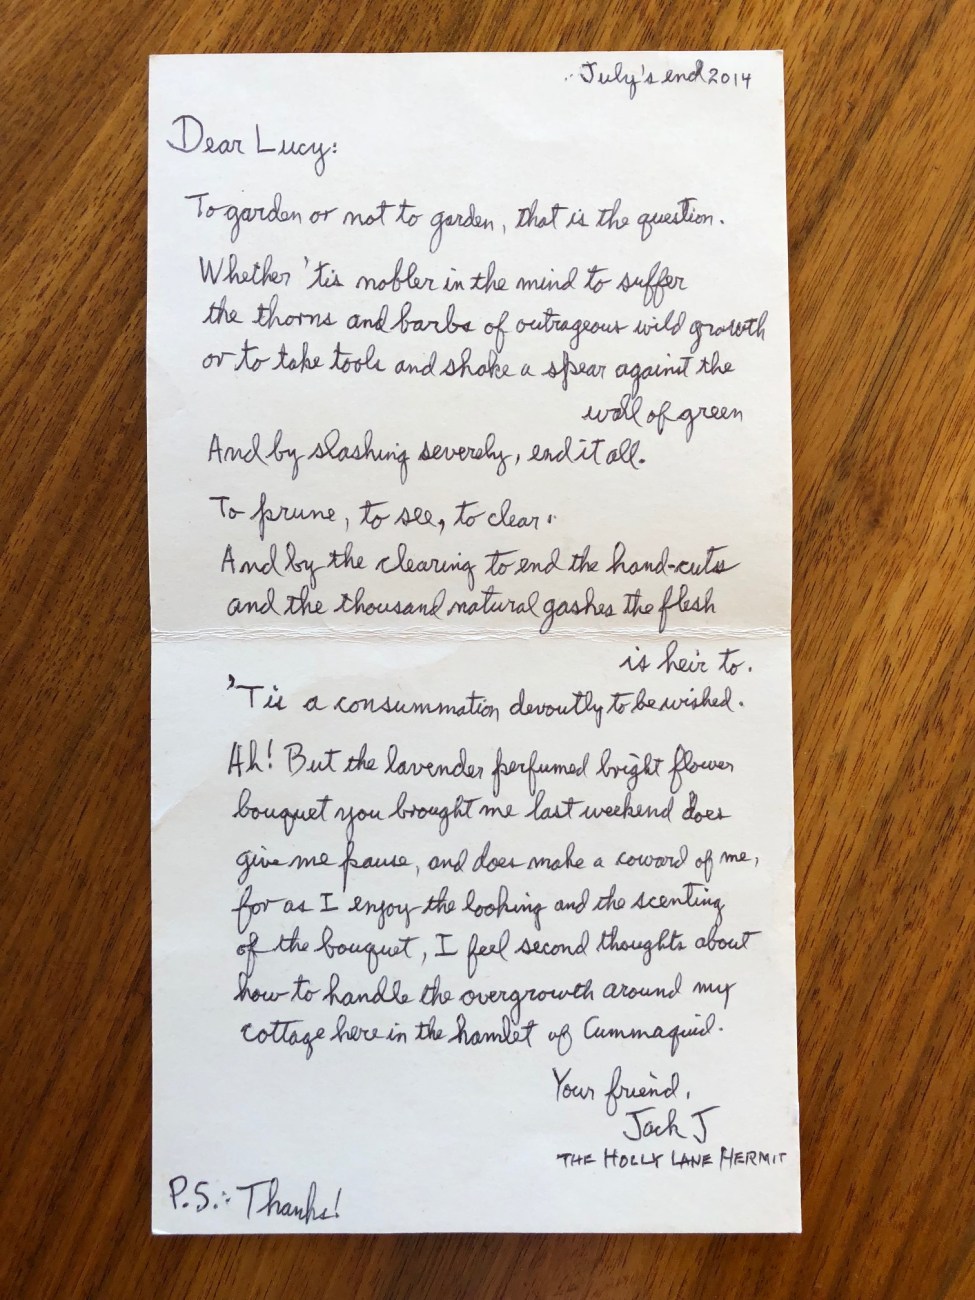 July's end 2014
Dear Lucy:
To garden or not to garden, that is the question.
Whether 'tis nobler in the mind to suffer
the thorns and barbs of outrageous wild growth
or to take tools and shake a spear against the
wall of green
And by slashing severely, end it all.
To prune, to see, to clear:
And by the clearing to end the hand-cuts
and the thousand natural gashes the flesh
is heir to.
'Tis a consummation devoutly to be wished.
Ah! But the lavender perfumed bright flower
bouquet you brought me last weekend does
give me pause, and does make a coward of me,
for as I enjoy the looking and the scenting
of the bouquet, I feel second thoughts about
how to handle the overgrowth around my
cottage here in the hamlet of Cummaquid.
Your friend,
Jack J
THE HOLLY LANE HERMIT
P.S.: Thanks!